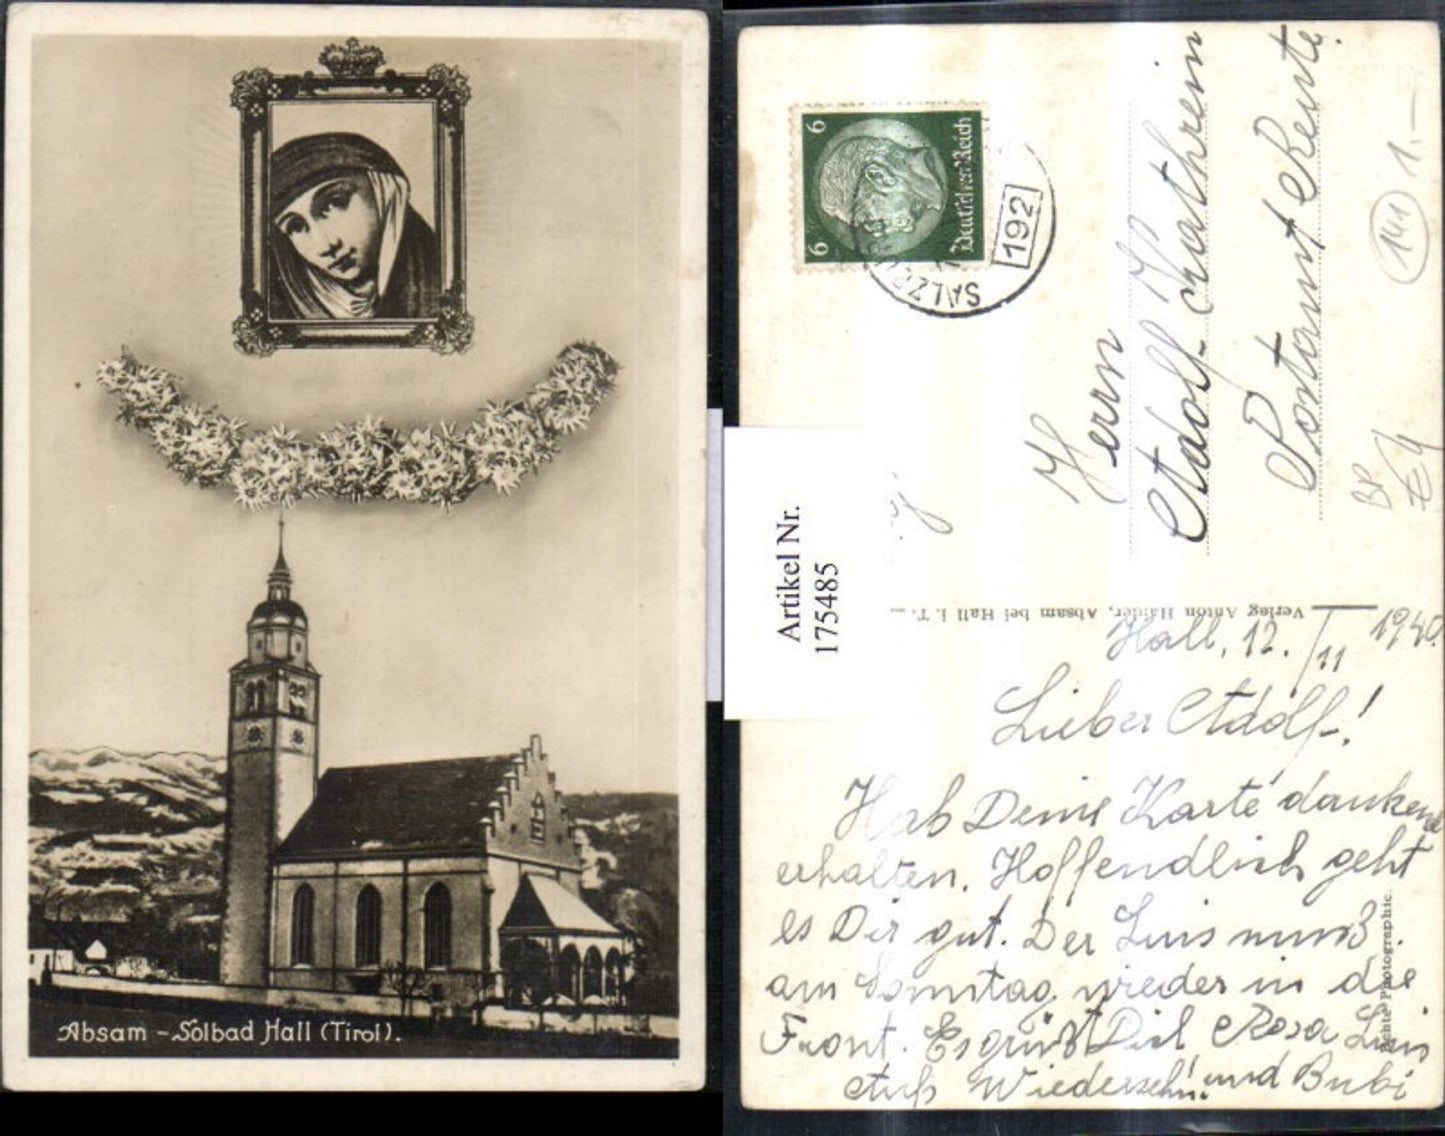 Absam - Solbad Hall (Tirol).
6
6
Deutsches Reich
192
Artikel Nr.
175485
Herrn
Adolf Kathrein
Postamt Reute
141
1.-
Verlag Anton Haider, Absam bei Hall i. T.
Echte Photographie
Hall, 12./11 1940.
Lieber Adolf!
Hab Deine Karte dankend
erhalten. Hoffendlich geht
es Dir gut. Der Luis muß
am Sonntag wieder in die
Front. Es grüßt Dich Rosa Luis
und Bubi
Auf Wiedersehn!